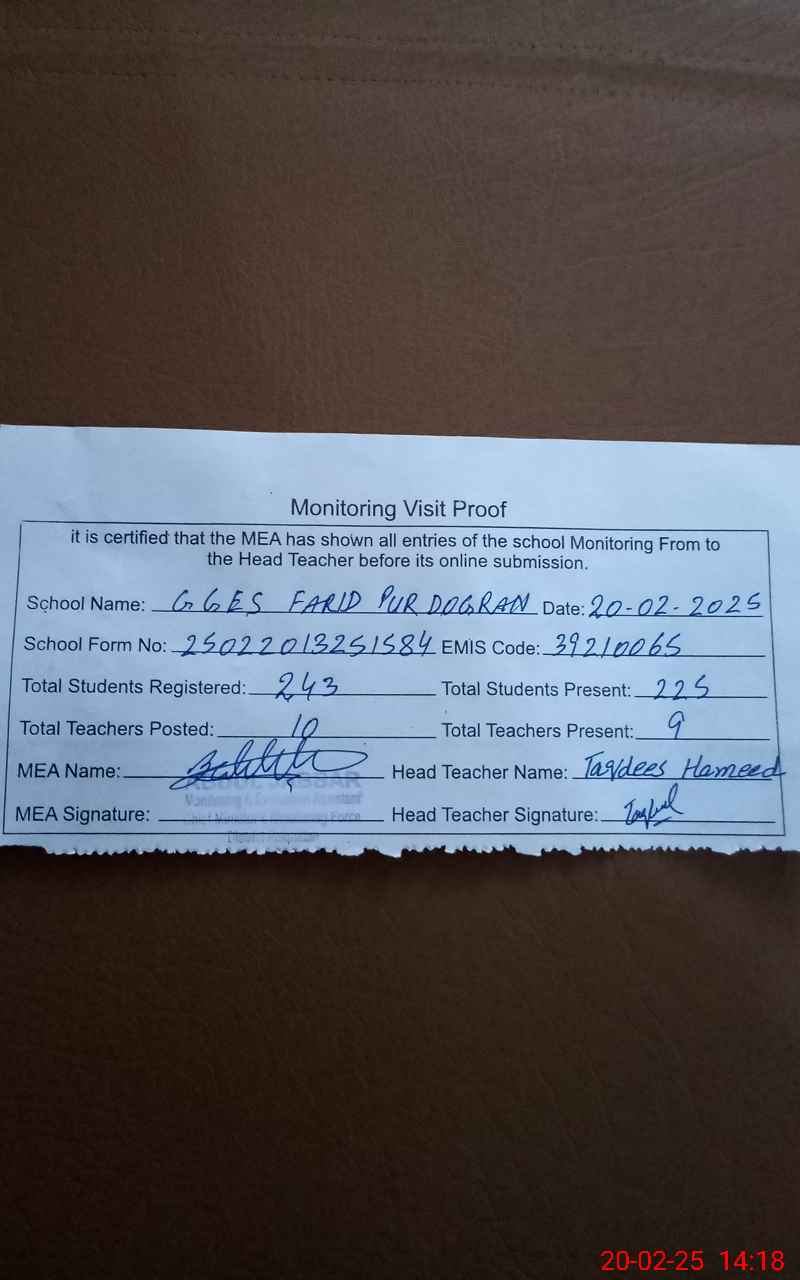 Monitoring Visit Proof
it is certified that the MEA has shown all entries of the school Monitoring From to
the Head Teacher before its online submission.
School Name: GGES FARID PUR DOGRAN Date: 20-02-2025
School Form No: 25022013251584 EMIS Code: 39210065
Total Students Registered: 243 Total Students Present: 225
Total Teachers Posted: 10 Total Teachers Present: 9
MEA Name: Head Teacher Name: Taqdees Hameed
ABDUL JABBAR
Monitoring & Evaluation Assistant
MEA Signature: Head Teacher Signature:
Chief Minister's Monitoring Force
20-02-25 14:18